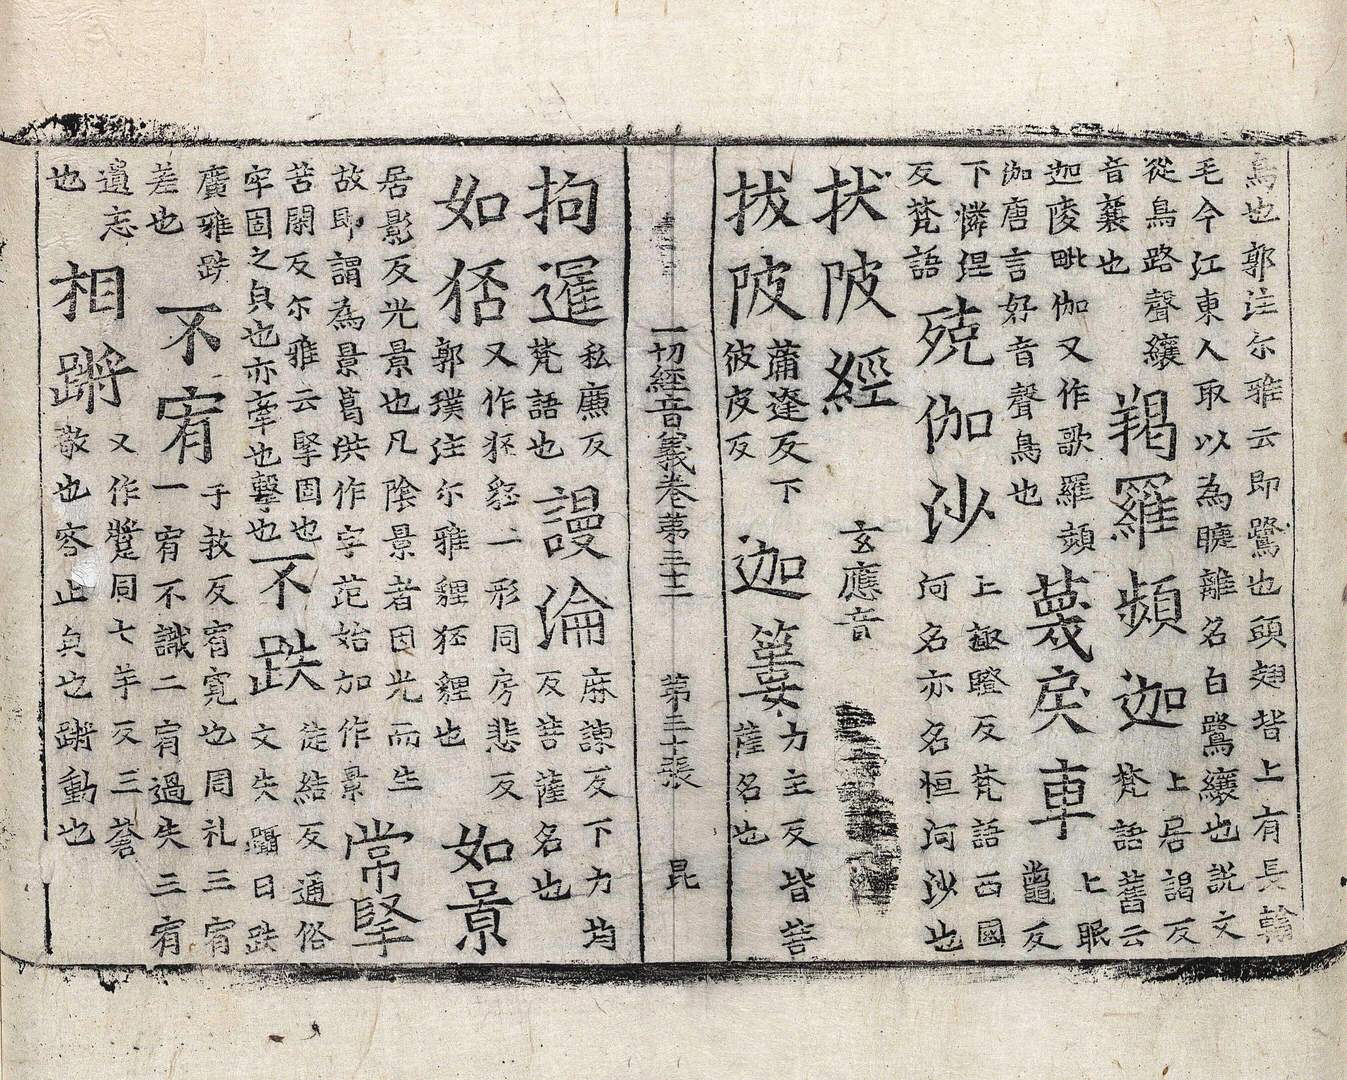 鳥也郭注尔雅云即鷺也頭翅皆上有長翰
毛今江東人取以為睫離名白鷺纕也說文
從鳥路聲纕
音襄也
羯羅頻迦
上居謁反
梵語舊云
迦陵毗伽又作歌羅頻
伽唐言好音聲鳥也
薎戾車
上眠
鼈反
下憐涅
反梵語
殑伽沙
上極瞪反梵語西國
河名亦名恒河沙也
拔陂經 玄應音
拔陂
蒲逢反下
彼皮反
迦簍
力主反皆菩
薩名也
一切經音義卷第三十二 第三十張 昆
拘邏
私廉反
梵語也
謾淪
麻諫反下力均
反菩薩名也
如狉
又作狉豾二形同房悲反
郭璞注尔雅貍狉貍也
如景
居影反光景也凡陰景者因光而生
故即謂為景葛洪作字苑始加作景
常堅
苦閑反尔雅云堅固也
牢固之皃也亦牽也掔也
不跌
徒結反通俗
文失躡曰跌
廣雅跌
差也
不宥
于救反宥寬也周礼三宥
一宥不識二宥過失三宥
遺忘
也
相蹡
又作同七羊反三蒼
敬也容止皃也蹡動也